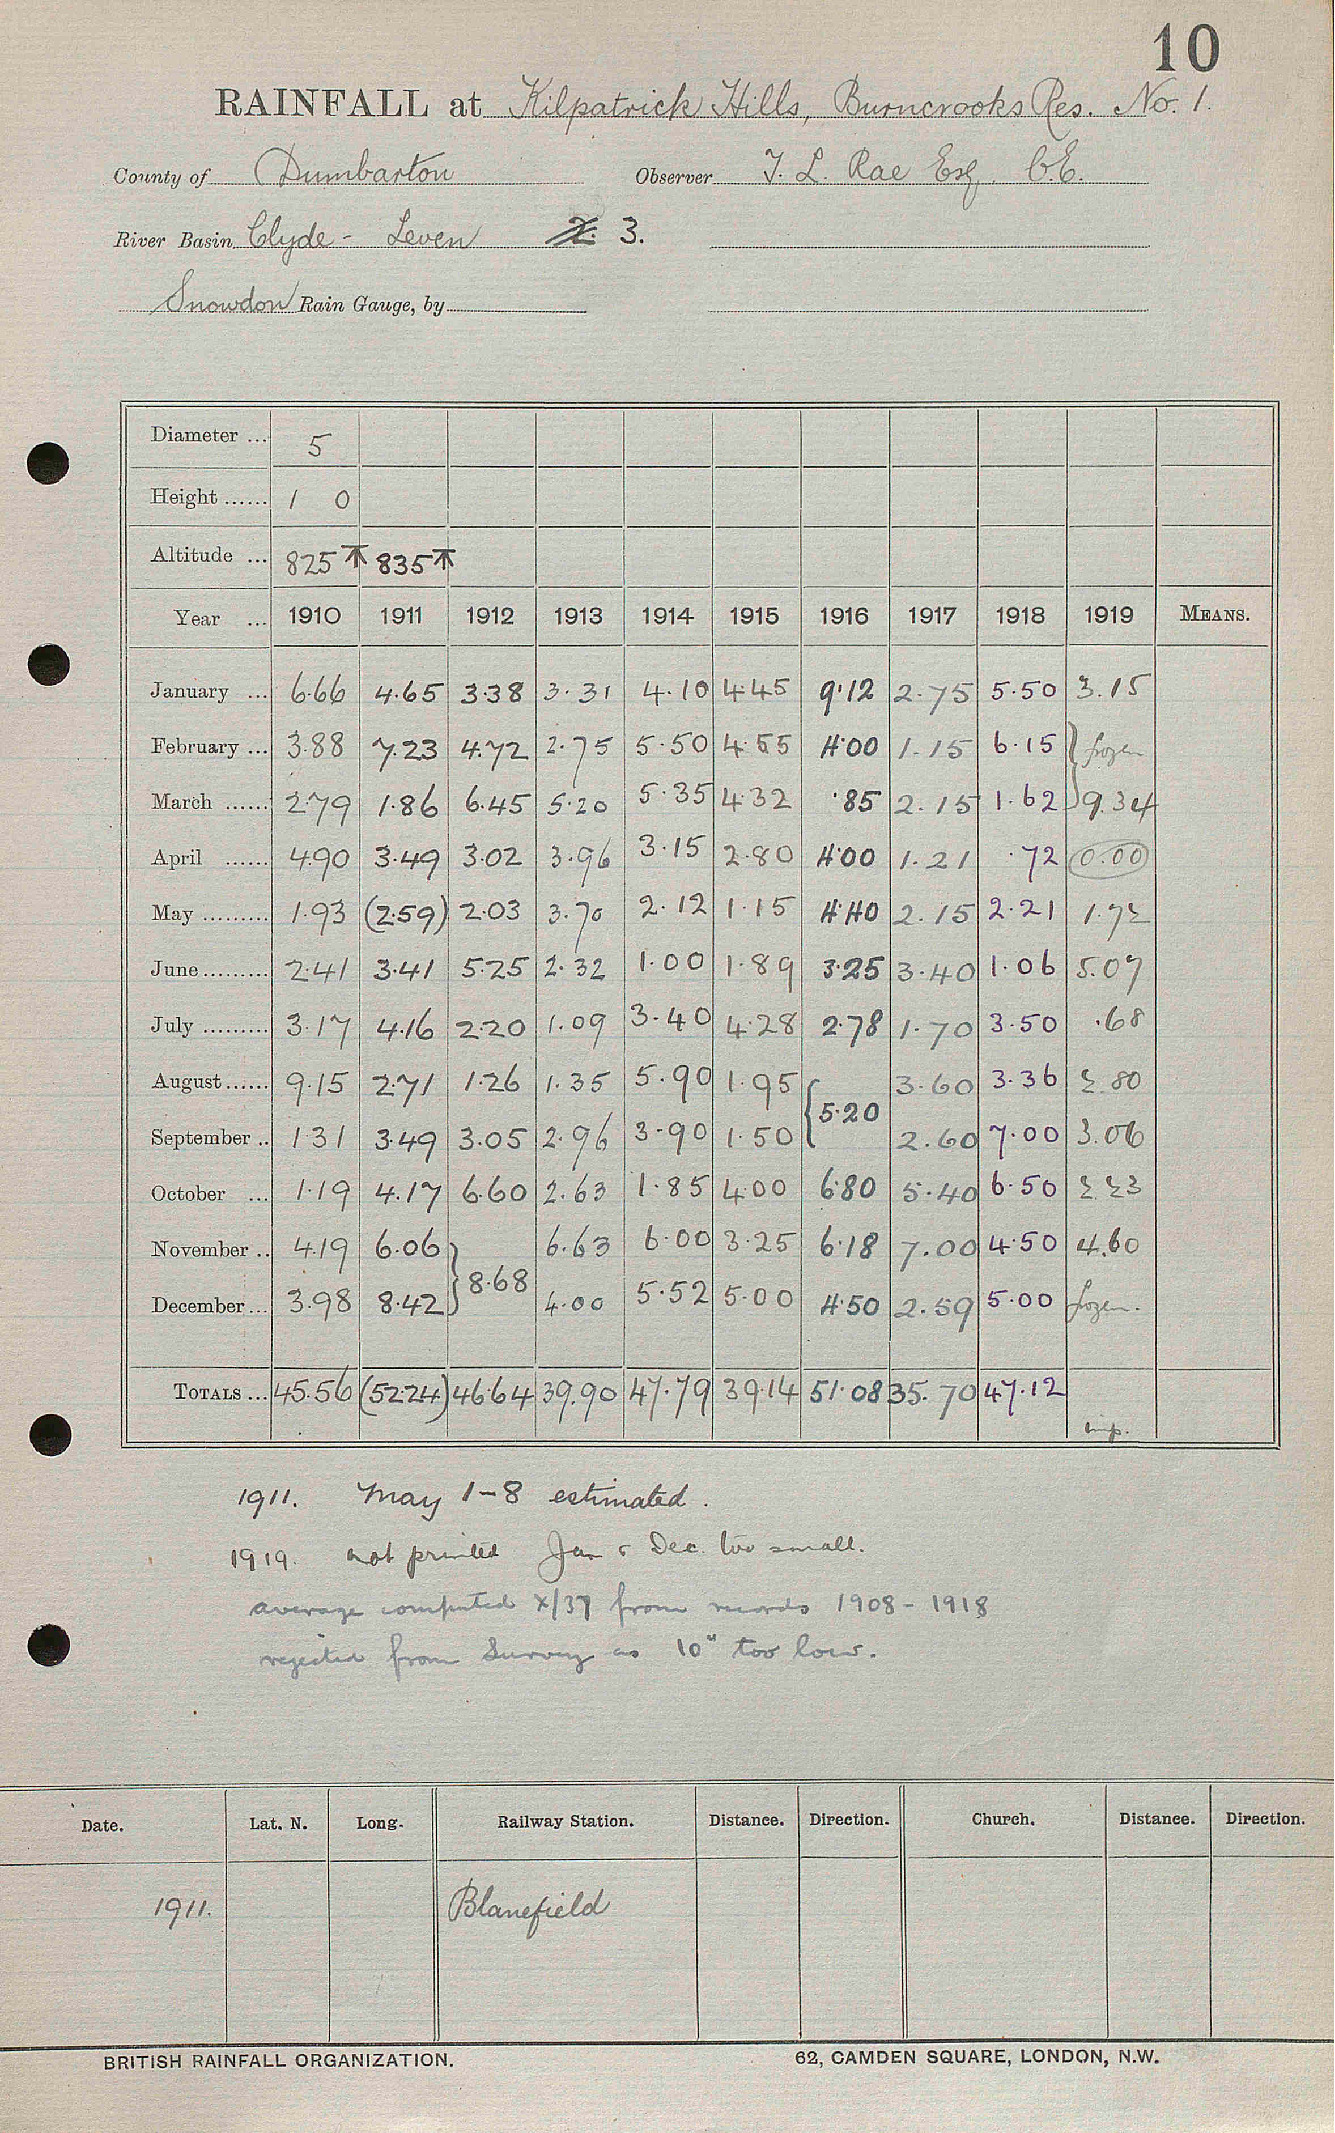 10
RAINFALL at Kilpatrick Hills, Burncrooks Res. No. 1.
County of Dumbarton Observer J. L. Rae Esq. C.E.
River Basin Clyde - Leven 3.
Snowdon Rain Gauge, by
Diameter ... 5
Height ...... 1 0
Altitude ... 825 ⊼ 835 ⊼
Year ... 1910 1911 1912 1913 1914 1915 1916 1917 1918 1919 MEANS.
January ... 6.66 4.65 3.38 3.31 4.10 4.45 9.12 2.75 5.50 3.15
February ... 3.88 7.23 4.72 2.75 5.50 4.55 4.00 1.15 6.15 } frozen
March ...... 2.79 1.86 6.45 5.20 5.35 4.32 .85 2.15 1.62 } 9.34
April ...... 4.90 3.49 3.02 3.96 3.15 2.80 4.00 1.21 .72 0.00
May ......... 1.93 (2.59) 2.03 3.70 2.12 1.15 4.40 2.15 2.21 1.72
June ......... 2.41 3.41 5.25 2.32 1.00 1.89 3.25 3.40 1.06 5.07
July ......... 3.17 4.16 2.20 1.09 3.40 4.28 2.78 1.70 3.50 .68
August ...... 9.15 2.71 1.26 1.35 5.90 1.95 { 5.20 3.60 3.36 2.80
September .. 1.31 3.49 3.05 2.96 3.90 1.50 2.60 7.00 3.06
October ... 1.19 4.17 6.60 2.63 1.85 4.00 6.80 5.40 6.50 2.23
November .. 4.19 6.06 } 8.68 6.63 6.00 3.25 6.18 7.00 4.50 4.60
December ... 3.98 8.42 4.00 5.52 5.00 4.50 2.59 5.00 frozen.
TOTALS ... 45.56 (52.24) 46.64 39.90 47.79 39.14 51.08 35.70 47.12
imp.
1911. May 1-8 estimated.
1919. not printed Jan & Dec. too small.
average computed x/37 from records 1908-1918
rejected from Survey as 10" too low.
Date. Lat. N. Long. Railway Station. Distance. Direction. Church. Distance. Direction.
1911. Blanefield
BRITISH RAINFALL ORGANIZATION. 62, CAMDEN SQUARE, LONDON, N.W.